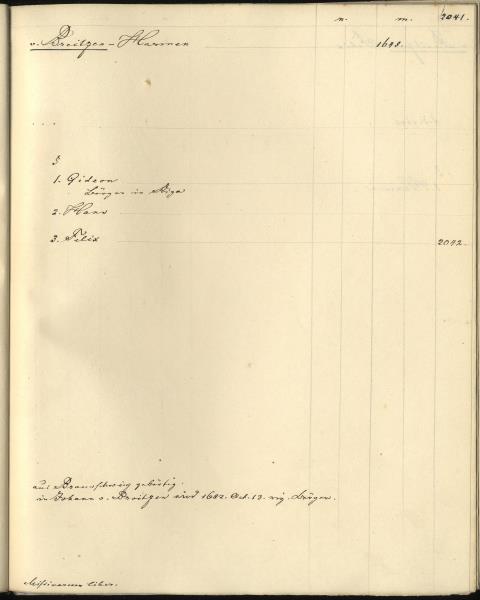 n. m. 2041.
v. Breitzen - Harmen 1648.
. . .
3
1. Gideon
Bürger in Riga
2. Hans
3. Felix 2042.
aus Braunschweig gebürtig.
in Johann v. Breitzen wird 1682. Oct. 13. rig. Bürger.
liber.